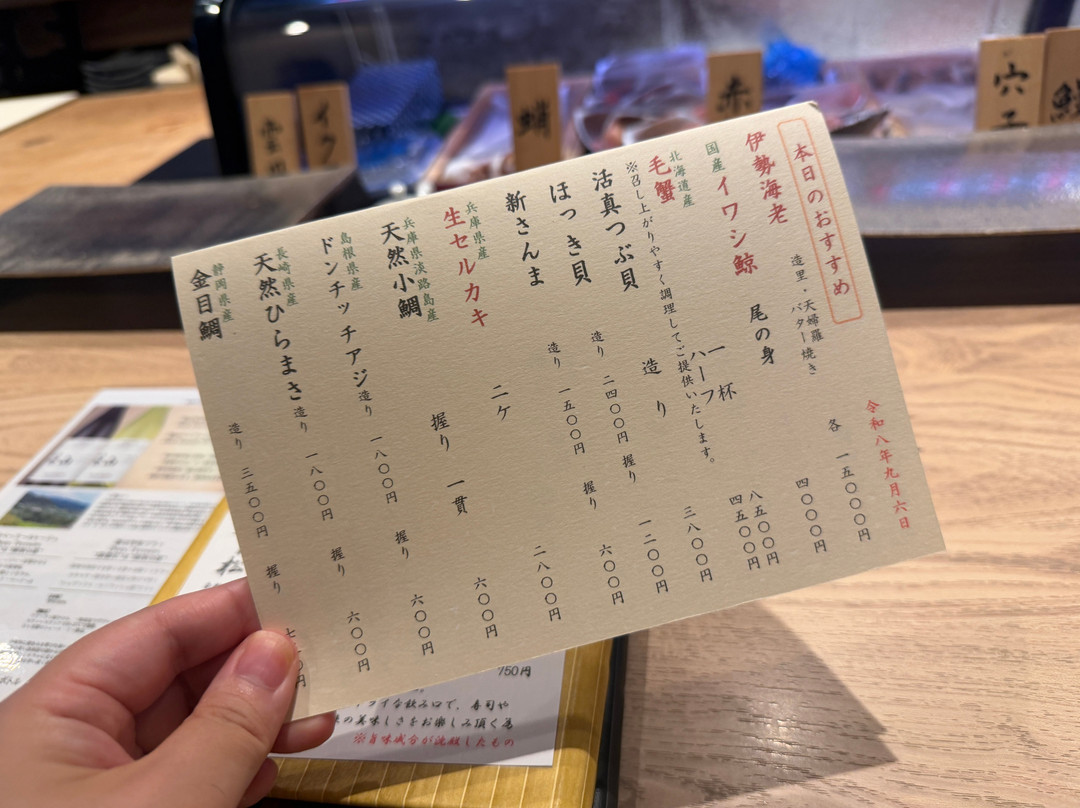 令和八年九月六日
本日のおすすめ
伊勢海老 造里・天婦羅 バター焼き 各 一五〇〇〇円
国産 イワシ鯨 尾の身 四〇〇〇円
北海道産 毛蟹 一杯 八五〇〇円
ハーフ 四五〇〇円
※召し上がりやすく調理してご提供いたします。
活真つぶ貝 造り 三八〇〇円
ほっき貝 造り 二四〇〇円 握り 一二〇〇円
新さんま 造り 一五〇〇円 握り 六〇〇円
兵庫県産 生セルカキ 二ケ 二八〇〇円
兵庫県淡路島産 天然小鯛 握り 一貫 六〇〇円
島根県産 ドンチッチアジ 造り 一八〇〇円 握り 六〇〇円
長崎県産 天然ひらまさ 造り 一八〇〇円 握り 六〇〇円
静岡県産 金目鯛 造り 三五〇〇円 握り
赤
750円
な飲み口で、寿司や
の美味しさをお楽しみ頂く為
※旨味成分が沈殿したもの